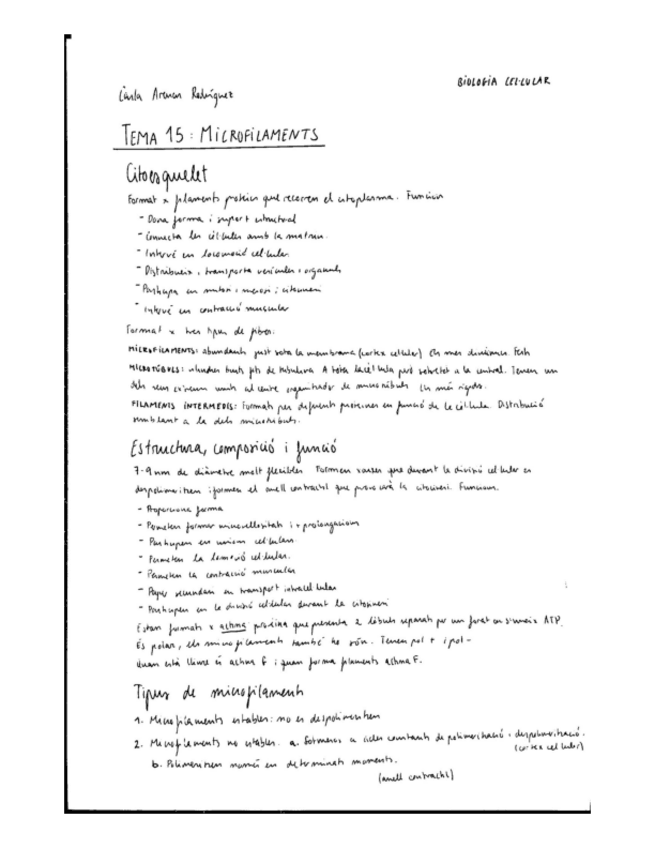 BIOLOGIA CEL·LULAR
Carla Rodríguez
TEMA 15: MICROFILAMENTS
Citoesquelet
Format x filaments proteics que recorren el citoplasma. Funcions
- Dona forma i suport estructural
- Connecta les cèl·lules amb la matriu.
- Intervé en locomoció cel·lular.
- Distribueix i transporta vesícules i orgànuls
- Participa en mitosi i meiosi i citocinesi
- Intervé en contracció muscular
Format x tres tipus de fibres:
MICROFILAMENTS: abundants just sota la membrana (cortex cel·lular) Els més dinàmics.
MICROTÚBULS: cilindres buits fets de tubulina A tota la cèl·lula però sobretot a la central. Tenen un
dels seus extrems units al centre organitzador de microtúbuls Els més rígids.
FILAMENTS INTERMEDIS: Formats per diferents proteïnes en funció de la cèl·lula. Distribució
semblant a la dels microtúbuls.
Estructura, composició i funció
7-9 nm de diàmetre molt flexibles Formen xarxes que durant la divisió cel·lular es
despolimeritzen i formen el anell contractil que provocarà la citocinesi. Funcions.
- Proporciona forma
- Permeten formar microvellositats i prolongacions
- Participen en unions cel·lulars.
- Permeten la locomoció cel·lular.
- Permeten la contracció muscular
- Paper secundari en transport intracel·lular
- Participen en la divisió cel·lular durant la citocinesi
Estan formats x actina proteïna que presenta 2 lòbuls separats per un forat on s'uneix ATP.
És polar, els microfilaments també ho són. Tenen pol + i pol -
Quan està lliure és actina G i quan forma filaments actina F.
Tipus de microfilament
1. Microfilaments estables: no es despolimeritzen
2. Microfilaments no estables. a. Sotmesos a cicles constants de polimerització i despolimerització.
(cortex cel·lular)
b. Polimeritzen només en determinats moments.
(anell contractil)